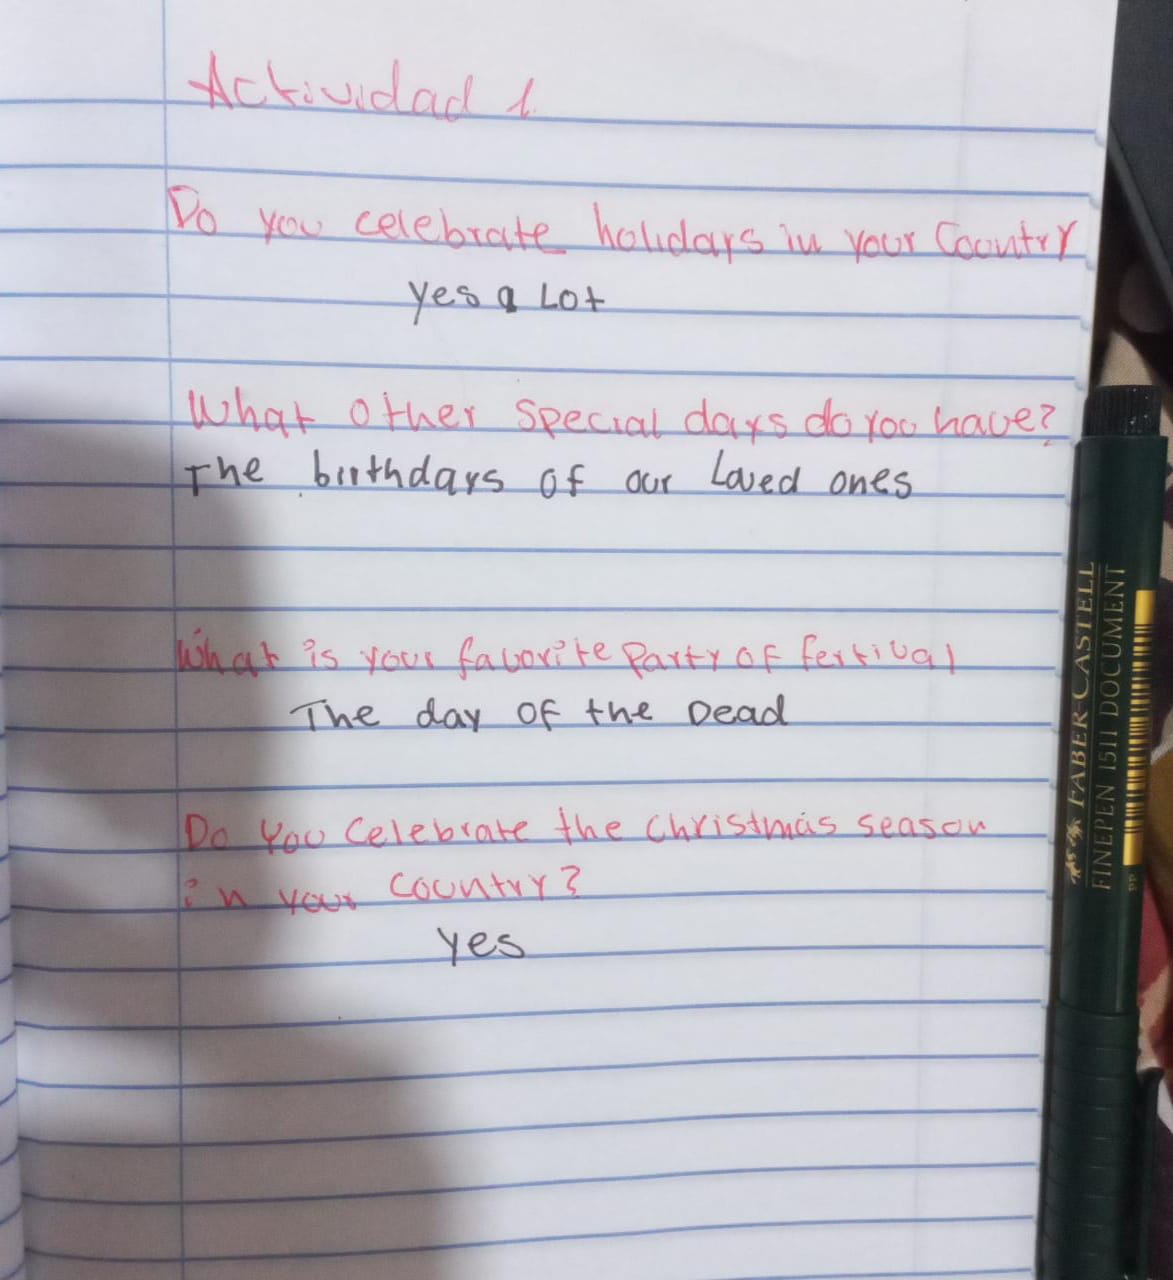 Actividad 1.
Do you celebrate holidays in your Country
yes a Lot
What other special days do you have?
The birthdays of our Loved ones
What is your favorite Party of festival
The day of the Dead
Do you celebrate the christmas season
in your country?
yes
FABER-CASTELL
FINEPEN 1511 DOCUMENT